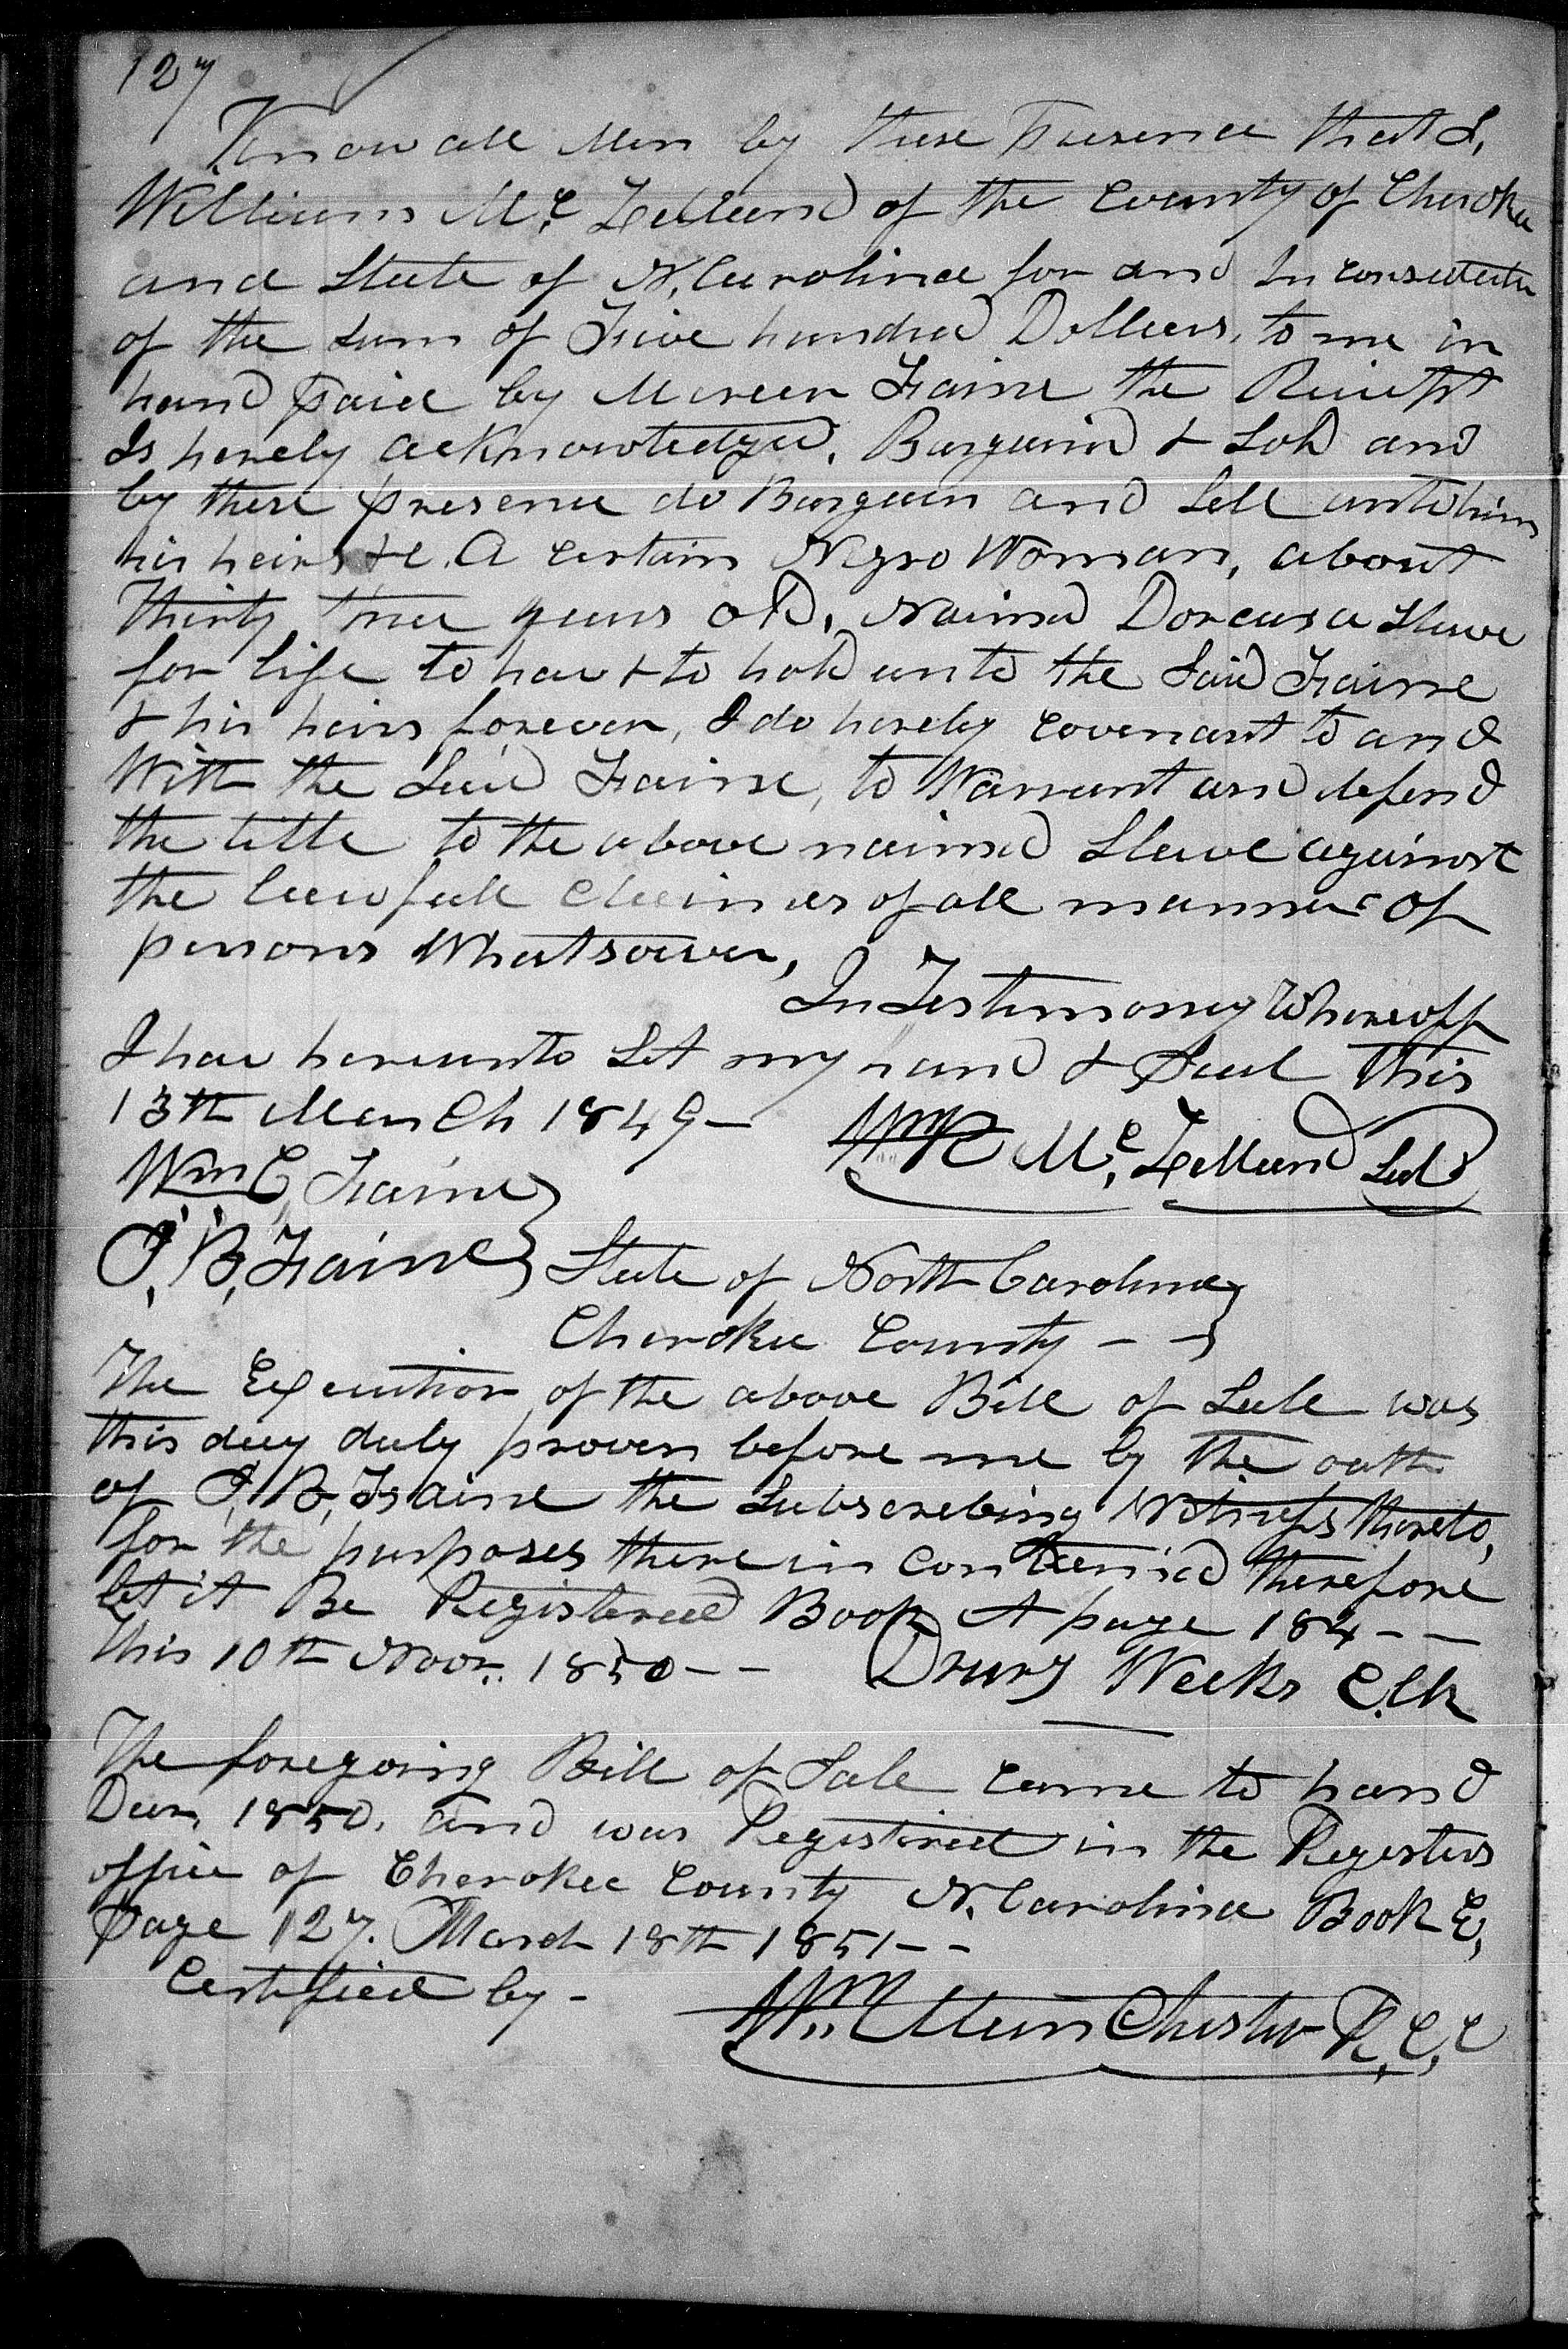 127
Know all Men by these Presence that I,
William Mc. Lelland of the County of Cherokee
and State of N. Carolina for and In consideration
of the Sum of Five hundred Dollars, to me in
hand paid by Mercer Fain the Receipt
Is hereby acknowledged, Bargaind & Sold and
by these presence do Bargain and Sell unto him
his heirs &c. A certain Negro Woman, about
Thirty three years old, Naimed Dorcas a Slave
for life to have & to hold unto the Said Faine
& his heirs forever, I do hereby covenant to and
With the Said Faine, to Warrant and defend
the title to the above naimed Slave against
the lawfull claimes of all manner of
persons Whatsoever,
In Testimony Whereoff
I have hereunto Set my hand & Seal this
13th March 1849 —
WmR Mc. Lelland Seal
Wm C, Faine
J, B, Faine
State of North Carolina
Cherokee County - -
The Execution of the above Bill of Sale was
this day duly proven before me by the oath
of J, B, Faine the Subscribing Witness thereto,
for the purposes there in contained therefore
let it Be Registered Book A page 184 - -
This 10th Nov. 1850 - - Drury Weeks Clk
The foregoing Bill of Sale came to hand
Decm, 1850, and was Registered in the Registers
office of Cherokee County N. Carolina Book E,
Page 127. March 18th 1851 - -
Certified by -
Wm Chester R, C, C